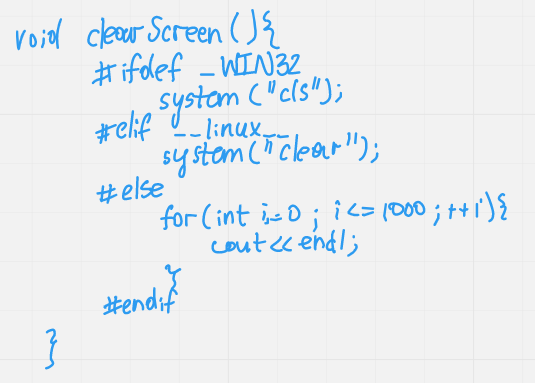 void clearScreen(){
#ifdef _WIN32
system("cls");
#elif __linux__
system("clear");
#else
for(int i=0; i<=1000; ++i){
cout<<endl;
}
#endif
}